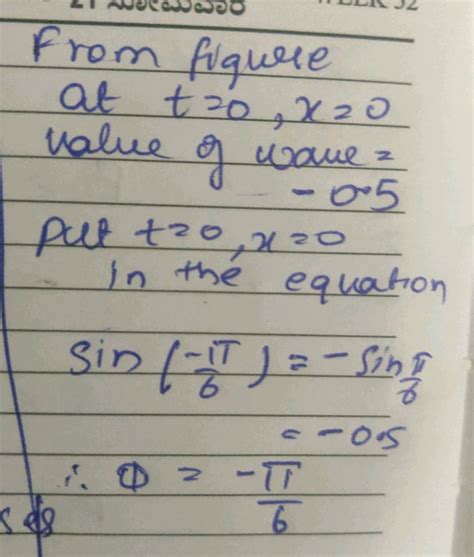 21 ಸೋಮವಾರ WEEK 32
From figure
at t=0, x=0
value of wave =
-0.5
put t=0, x=0
in the equation
sin (-π/6) = -sin π/6
= -0.5
∴ Φ = -π/6